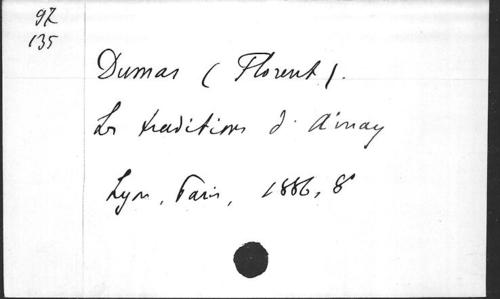 97
135
Dumas (Florent).
Les traditions d'Ainay
Lyon, Paris, 1886, 8°